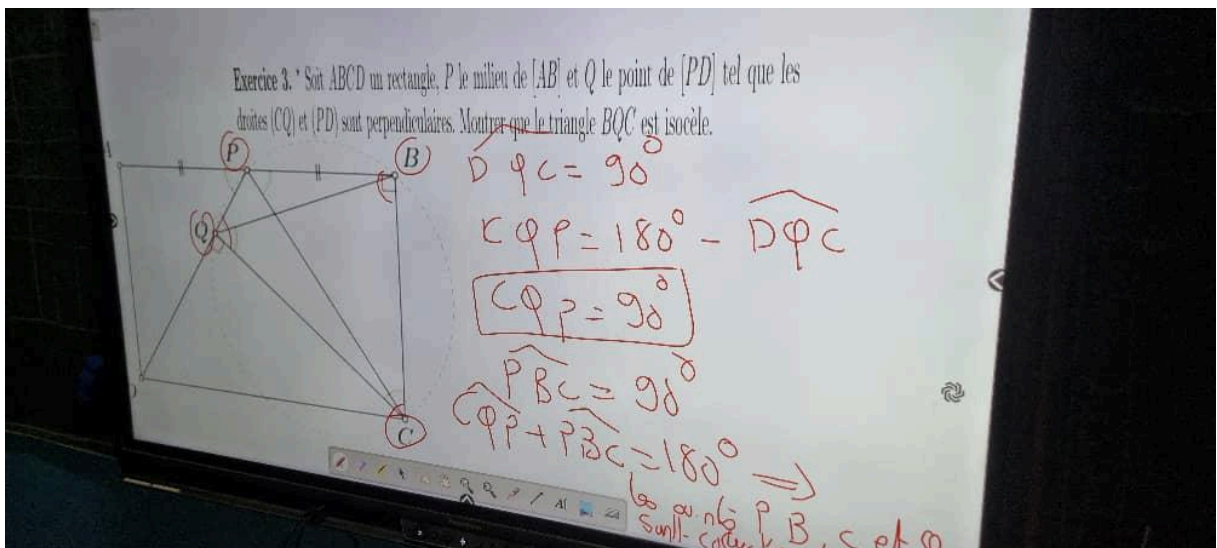 Exercice 3. * Soit ABCD un rectangle, P le milieu de [AB] et Q le point de [PD] tel que les
droites (CQ) et (PD) sont perpendiculaires. Montrer que le triangle BQC est isocèle.
P
B
Q
C
DQC = 90°
CQP = 180° - DQC
CQP = 90°
PBC = 90°
CQP + PBC = 180° ⟹
P, B, C et Q
AI